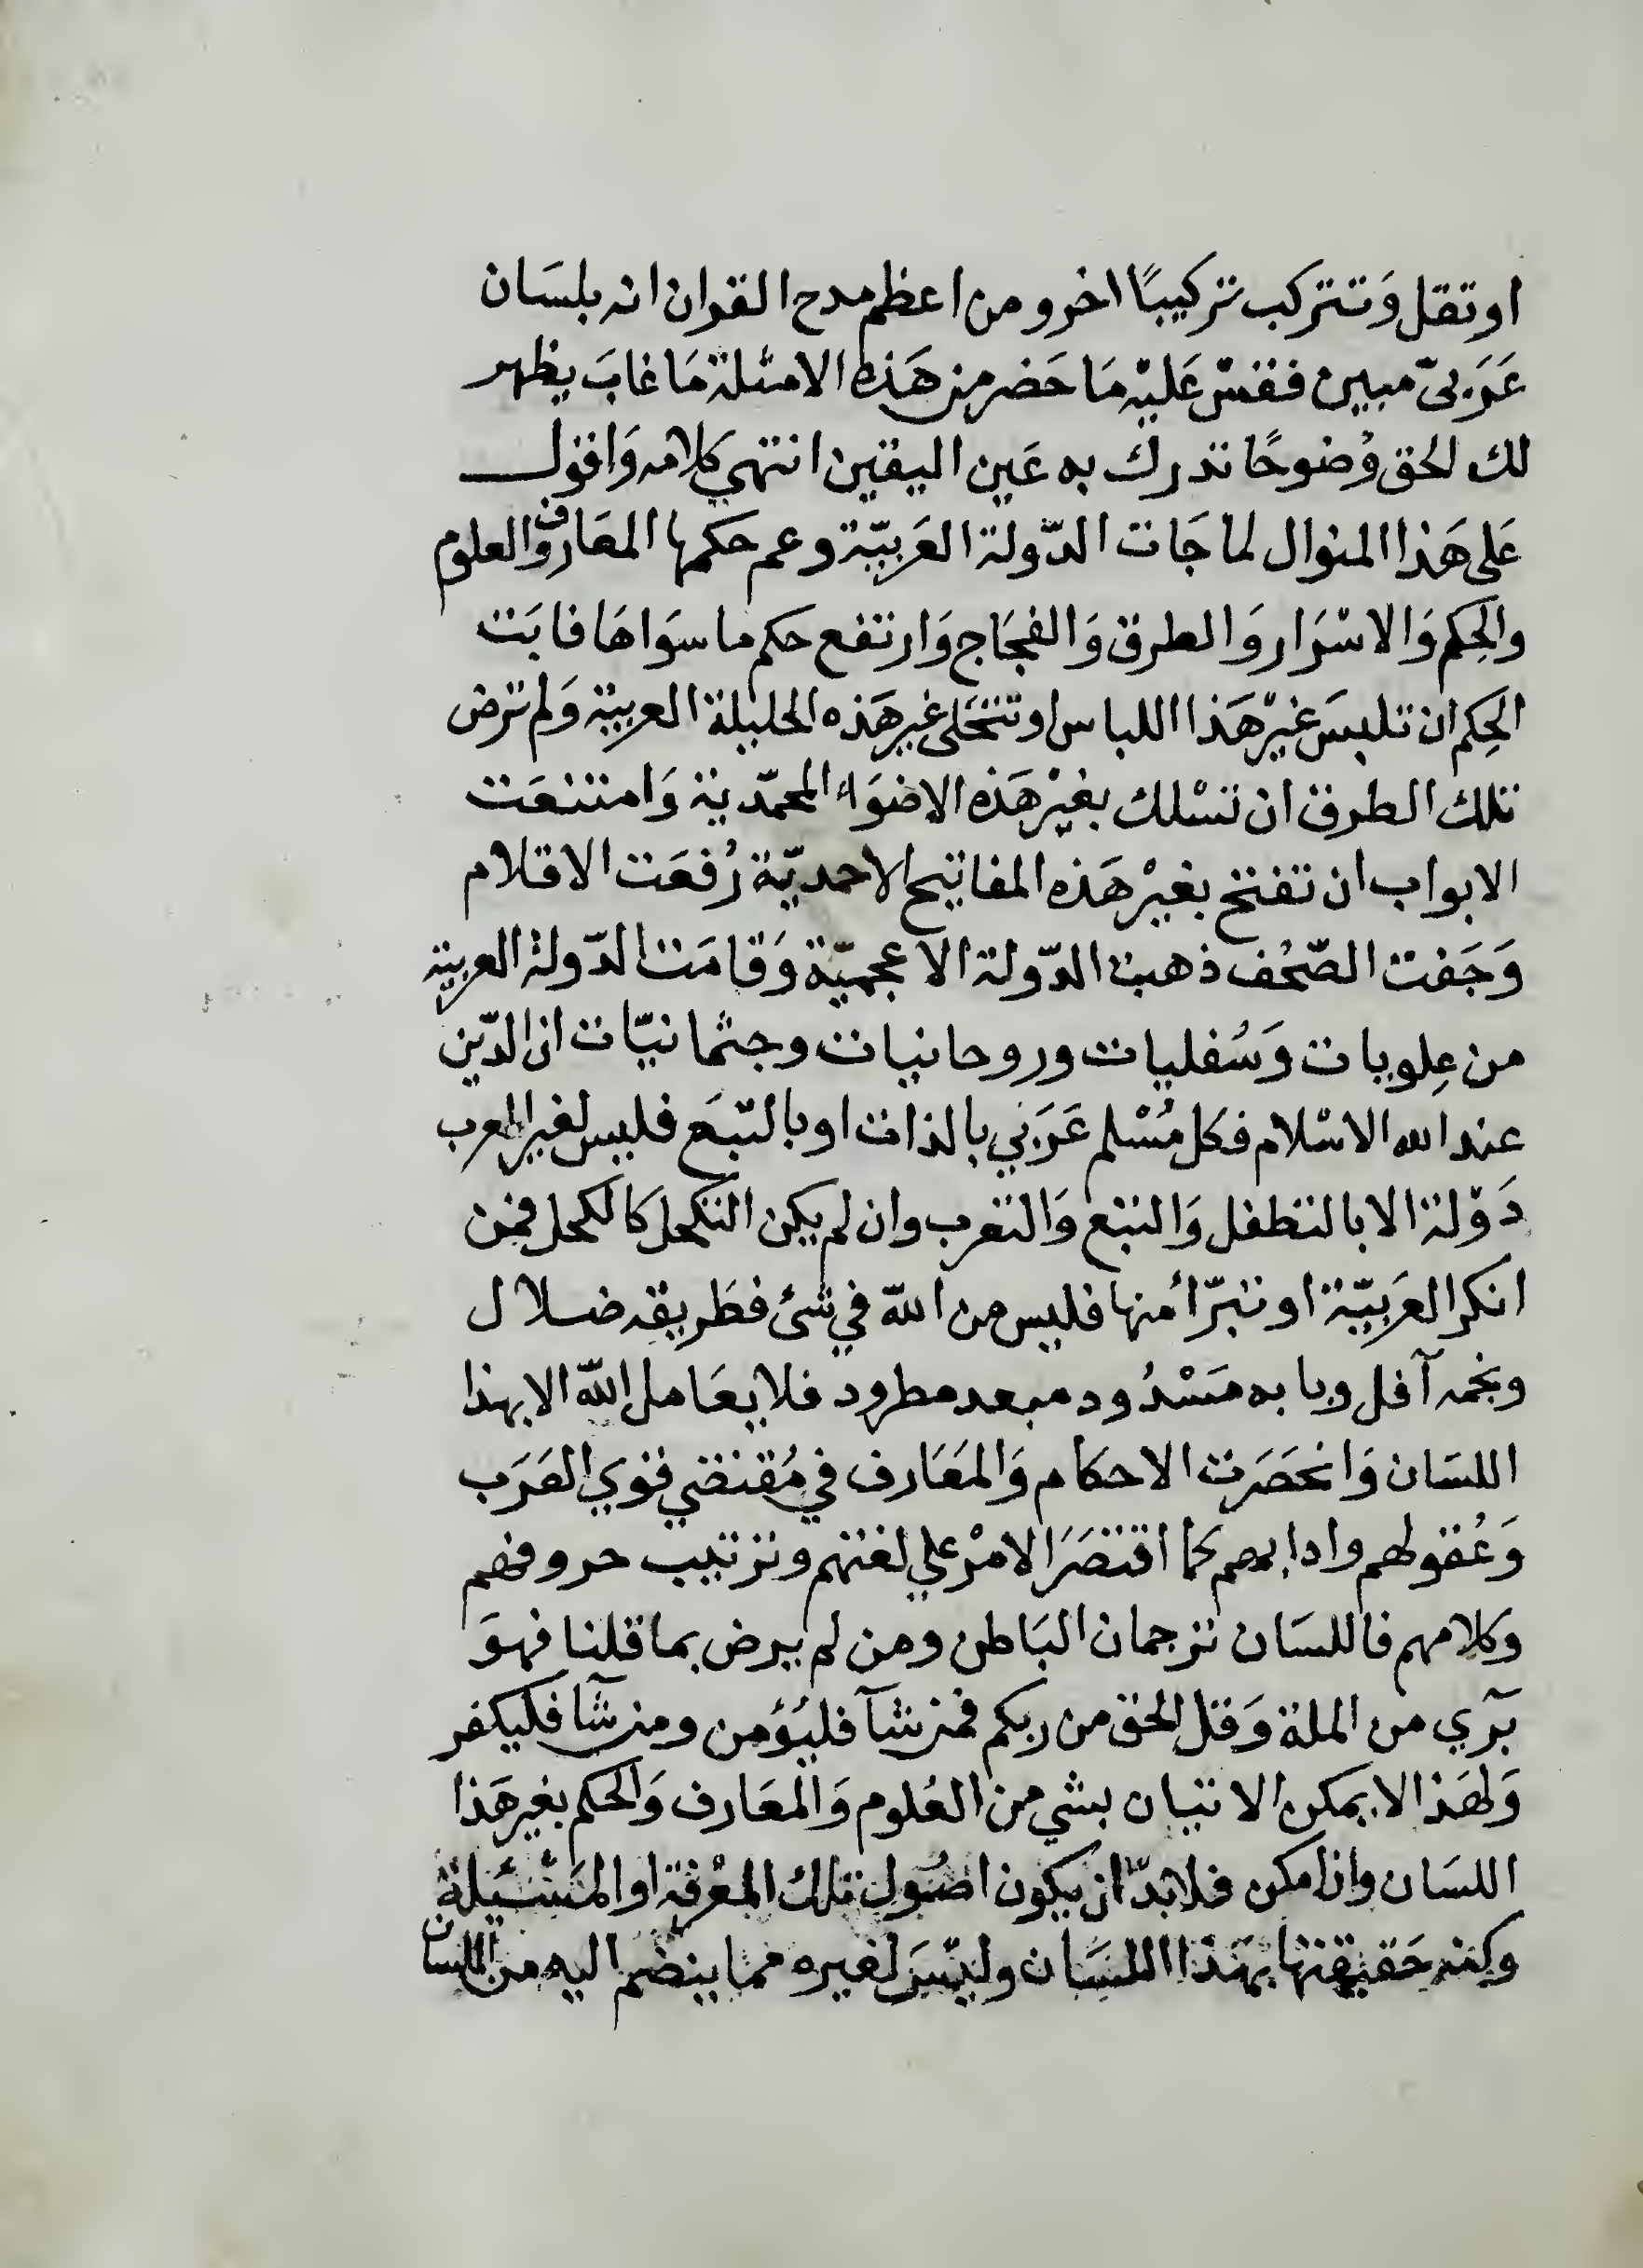 او تقل وَتتركب تركيبًا اخر ومن اعظم مدح القران انه بلسَان
عَرَبيّ مبين فقسْ عَليْه مَا حَضر من هَذه الامثلة مَا غابَ يظهر
لك الحق وُضوحًا تدرك به عَين اليقين انتهي كلامه وَاقول
عَلى هَذا المنوال لما جَات الدّولة العَربيّة وعم حكمها المعَارف والعلوم
والحِكم وَالاسْرَار وَالطرق وَالفجَاج وَارتفع حكم ما سوَاهَا فابَت
الحِكم ان تلبسَ غيْر هَذا اللباس او تتحَلى غير هَذه الحليلة العربية وَلم ترض
تلك الطرق ان تسْلك بغيْر هَذه الاضوَاء المحمّدية وَامتنعَت
الابواب ان تفتح بغيْر هَذه المفاتيح الاحمديّة رُفعَت الاقلام
وَجَفت الصّحُف ذهبت الدّولة الاعجميّة وَقامَت الدّولة العربية
من عِلويات وَسُفليات وروحانيات وجثمانيّات ان الدّين
عند الله الاسْلام فكل مُسْلم عَرَبي بالذات او بالتّبَع فليس لغير العرب
دَوْلة الا بالتطفل وَالتبع وَالتعرب وان لم يكن التكحل كالكحل فمن
انكر العَربيّة او تبرّأ منها فليس من الله في شئ فطَريقه ضلال
ونجمه آفل وبابه مَسْدُود مبعد مطرود فلا يعَامل الله الا بهذا
اللسَان وَانحَصَرت الاحكام وَالمعَارف في مُقتضي قوي العَرَب
وَعُقولهم وادابهم كما اقتصَرَ الامْر علي لغتهم وترتيب حروفهم
وكلامهم فاللسَان ترجمان البَاطن ومن لم يرض بما قلنا فهوَ
بَرّي من الملة وَقل الحق من ربكم فمن شآ فليؤمن ومن شآ فليكفر
وَلهَذا لا يمكن الاتيان بشي من العُلوم وَالمعَارف وَالحكم بغير هَذا
اللسَان وان امكن فلا بدّ ان يكون اصُول تلك المعْرفة او المسْئلة
وكنه حَقيقتها بهَذا اللسَان وليْسَ لغيره مما ينضم اليه من اللسان